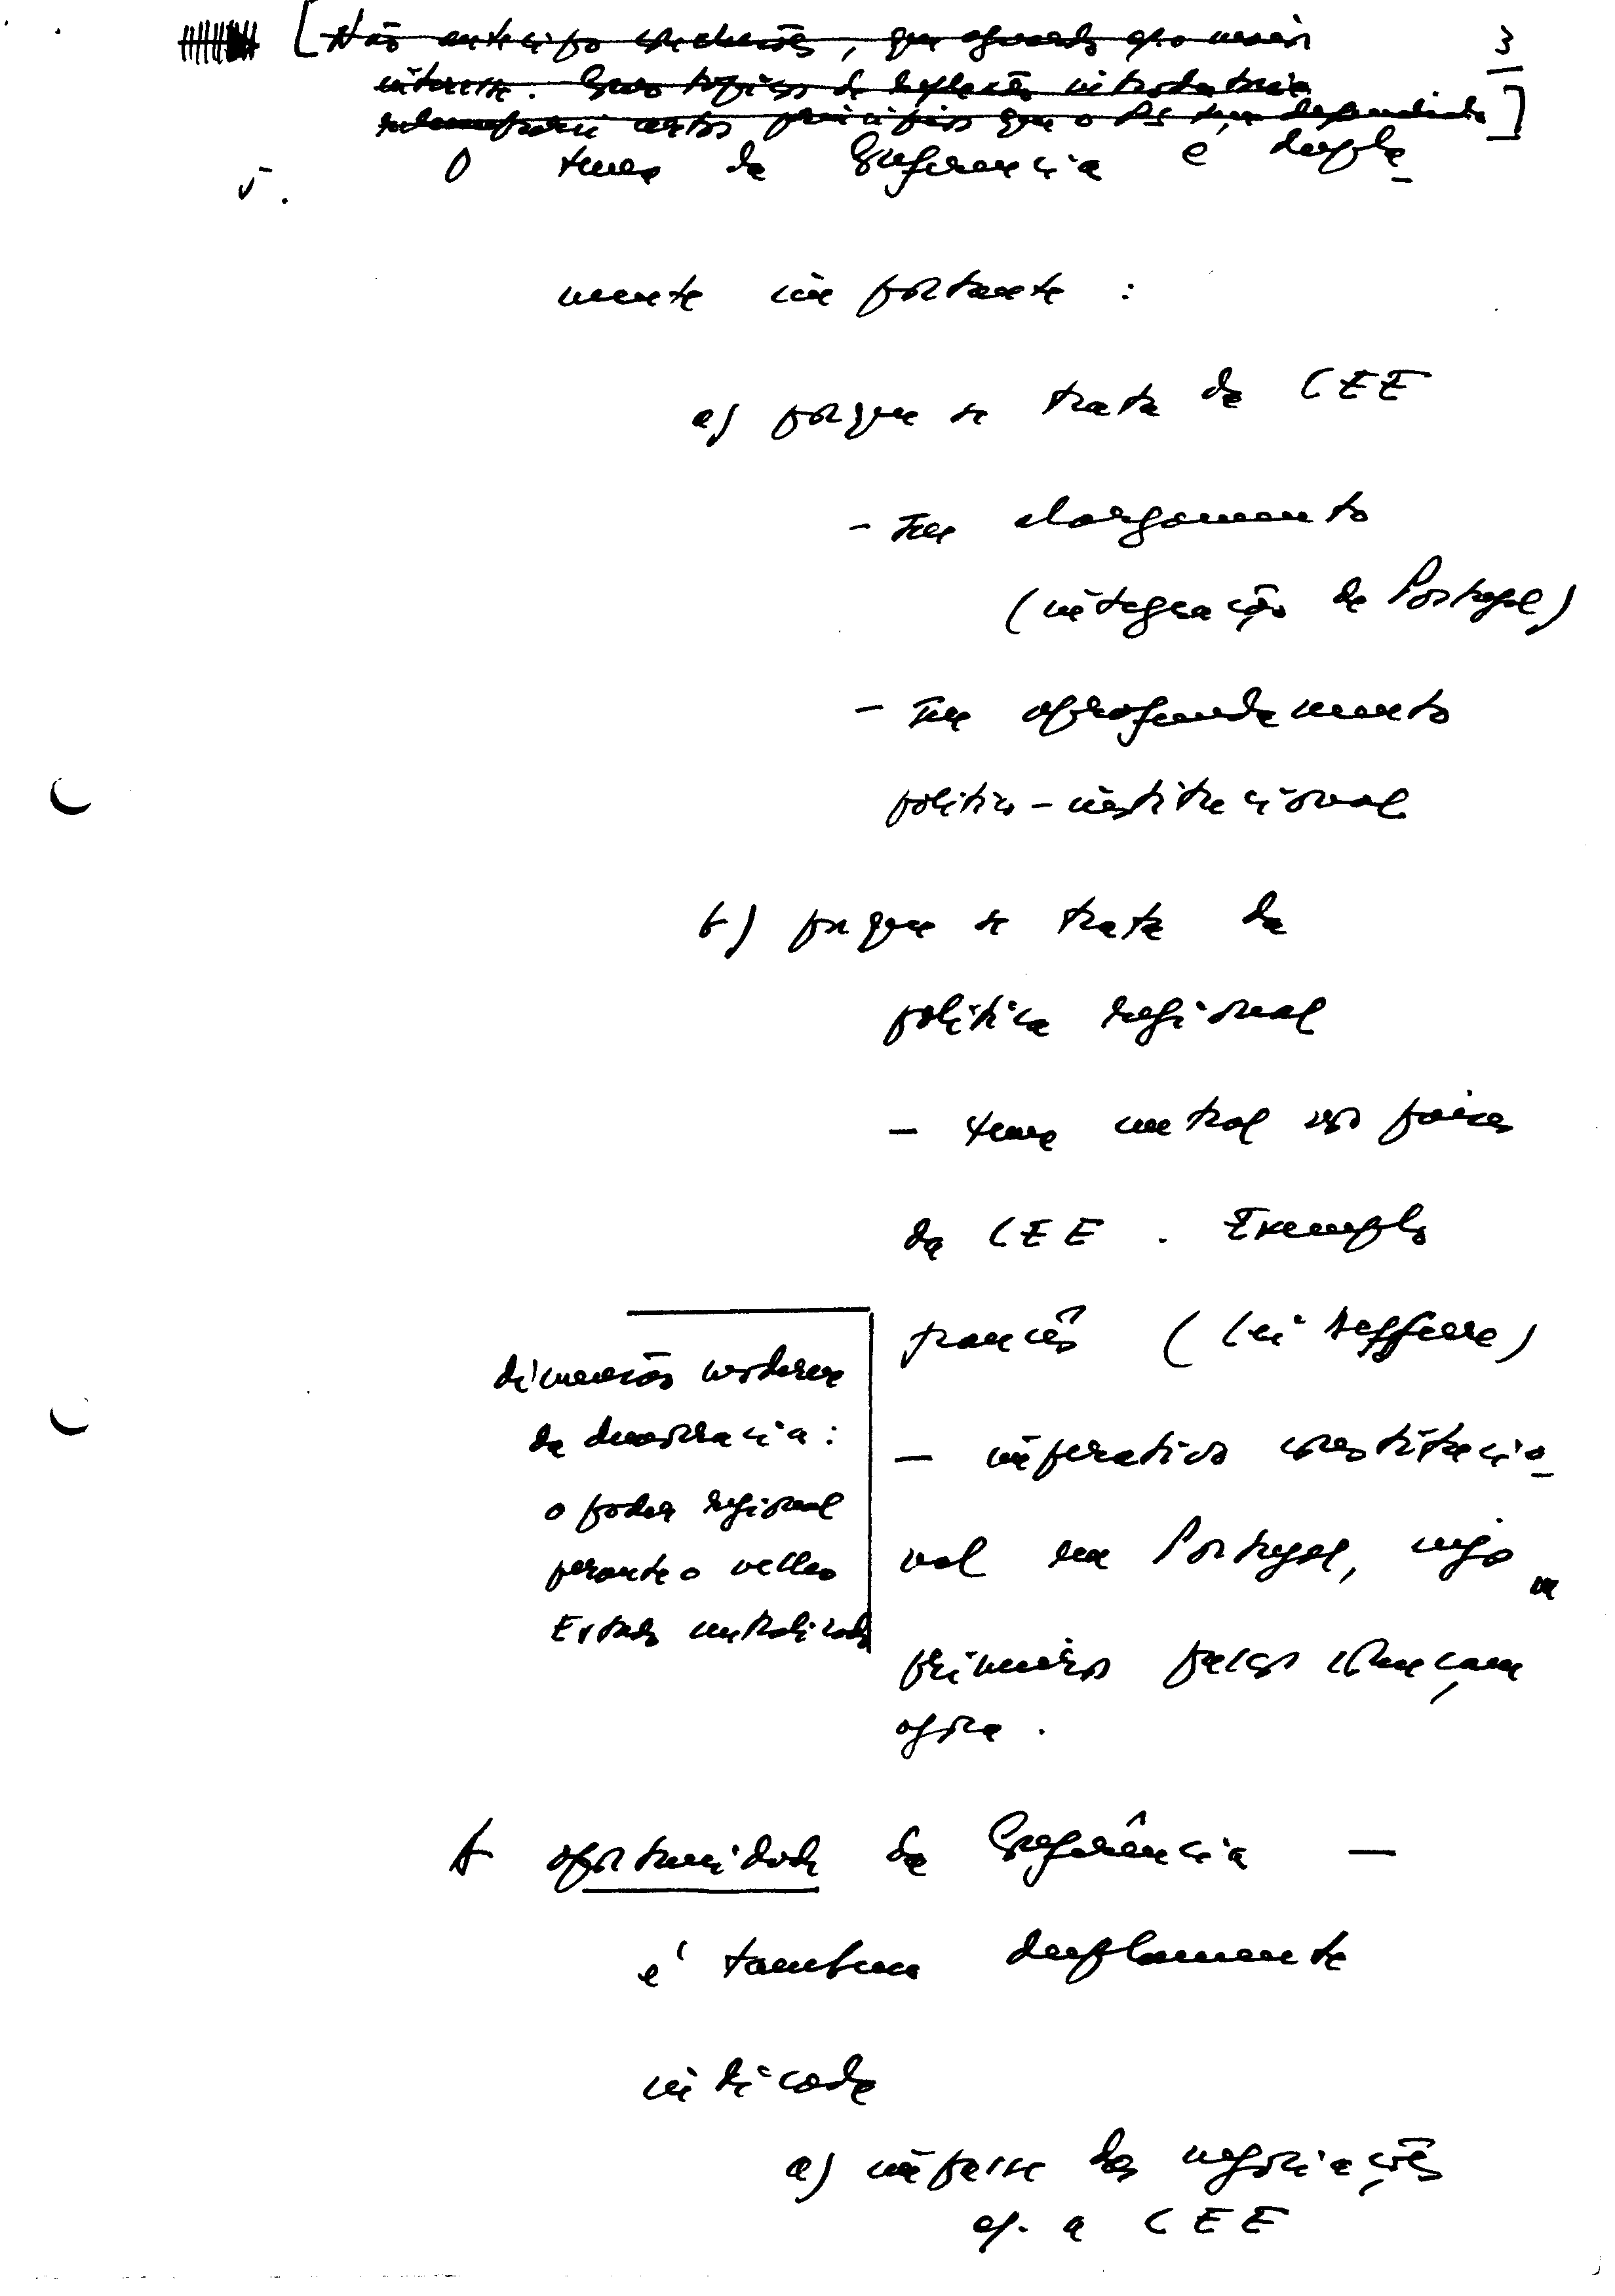 [Não antecipo conclusões, que aguardo com maior
3
interesse. Guas tópicos de reflexão introdutória
certos princípios que o PS tem defendido]
5. O tema da Conferencia é dupla-
mente importante :
a) porque se trata da CEE
- seu alargamento
(integração de Portugal)
- seu aprofundamento
politico-institucional
b) porque se trata da
politica regional
- tema central nos paises
da CEE . Exemplo
francês (Lei Defferre)
- imperativo constitucio-
nal em Portugal, cujos
primeiros passos começam
agora .
dimensão moderna
da democracia :
o poder regional
perante o velho
Estado centralizado
A oportunidade da Conferência —
é tambem duplamente
indicada
a) impasse das negociações
c/. a CEE